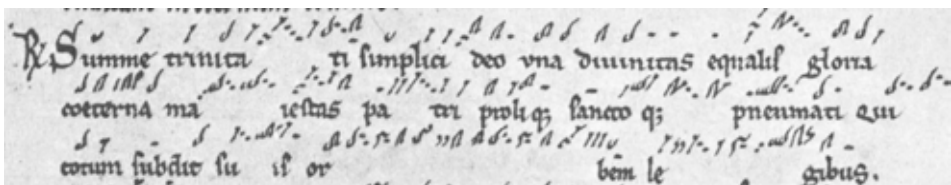 R Summe trinita ti simplici deo vna diuinitas equalis gloria
coeterna ma iestas pa tri proliq; sancto q; pneumati Qui
totum subdit su is or bem le gibus.